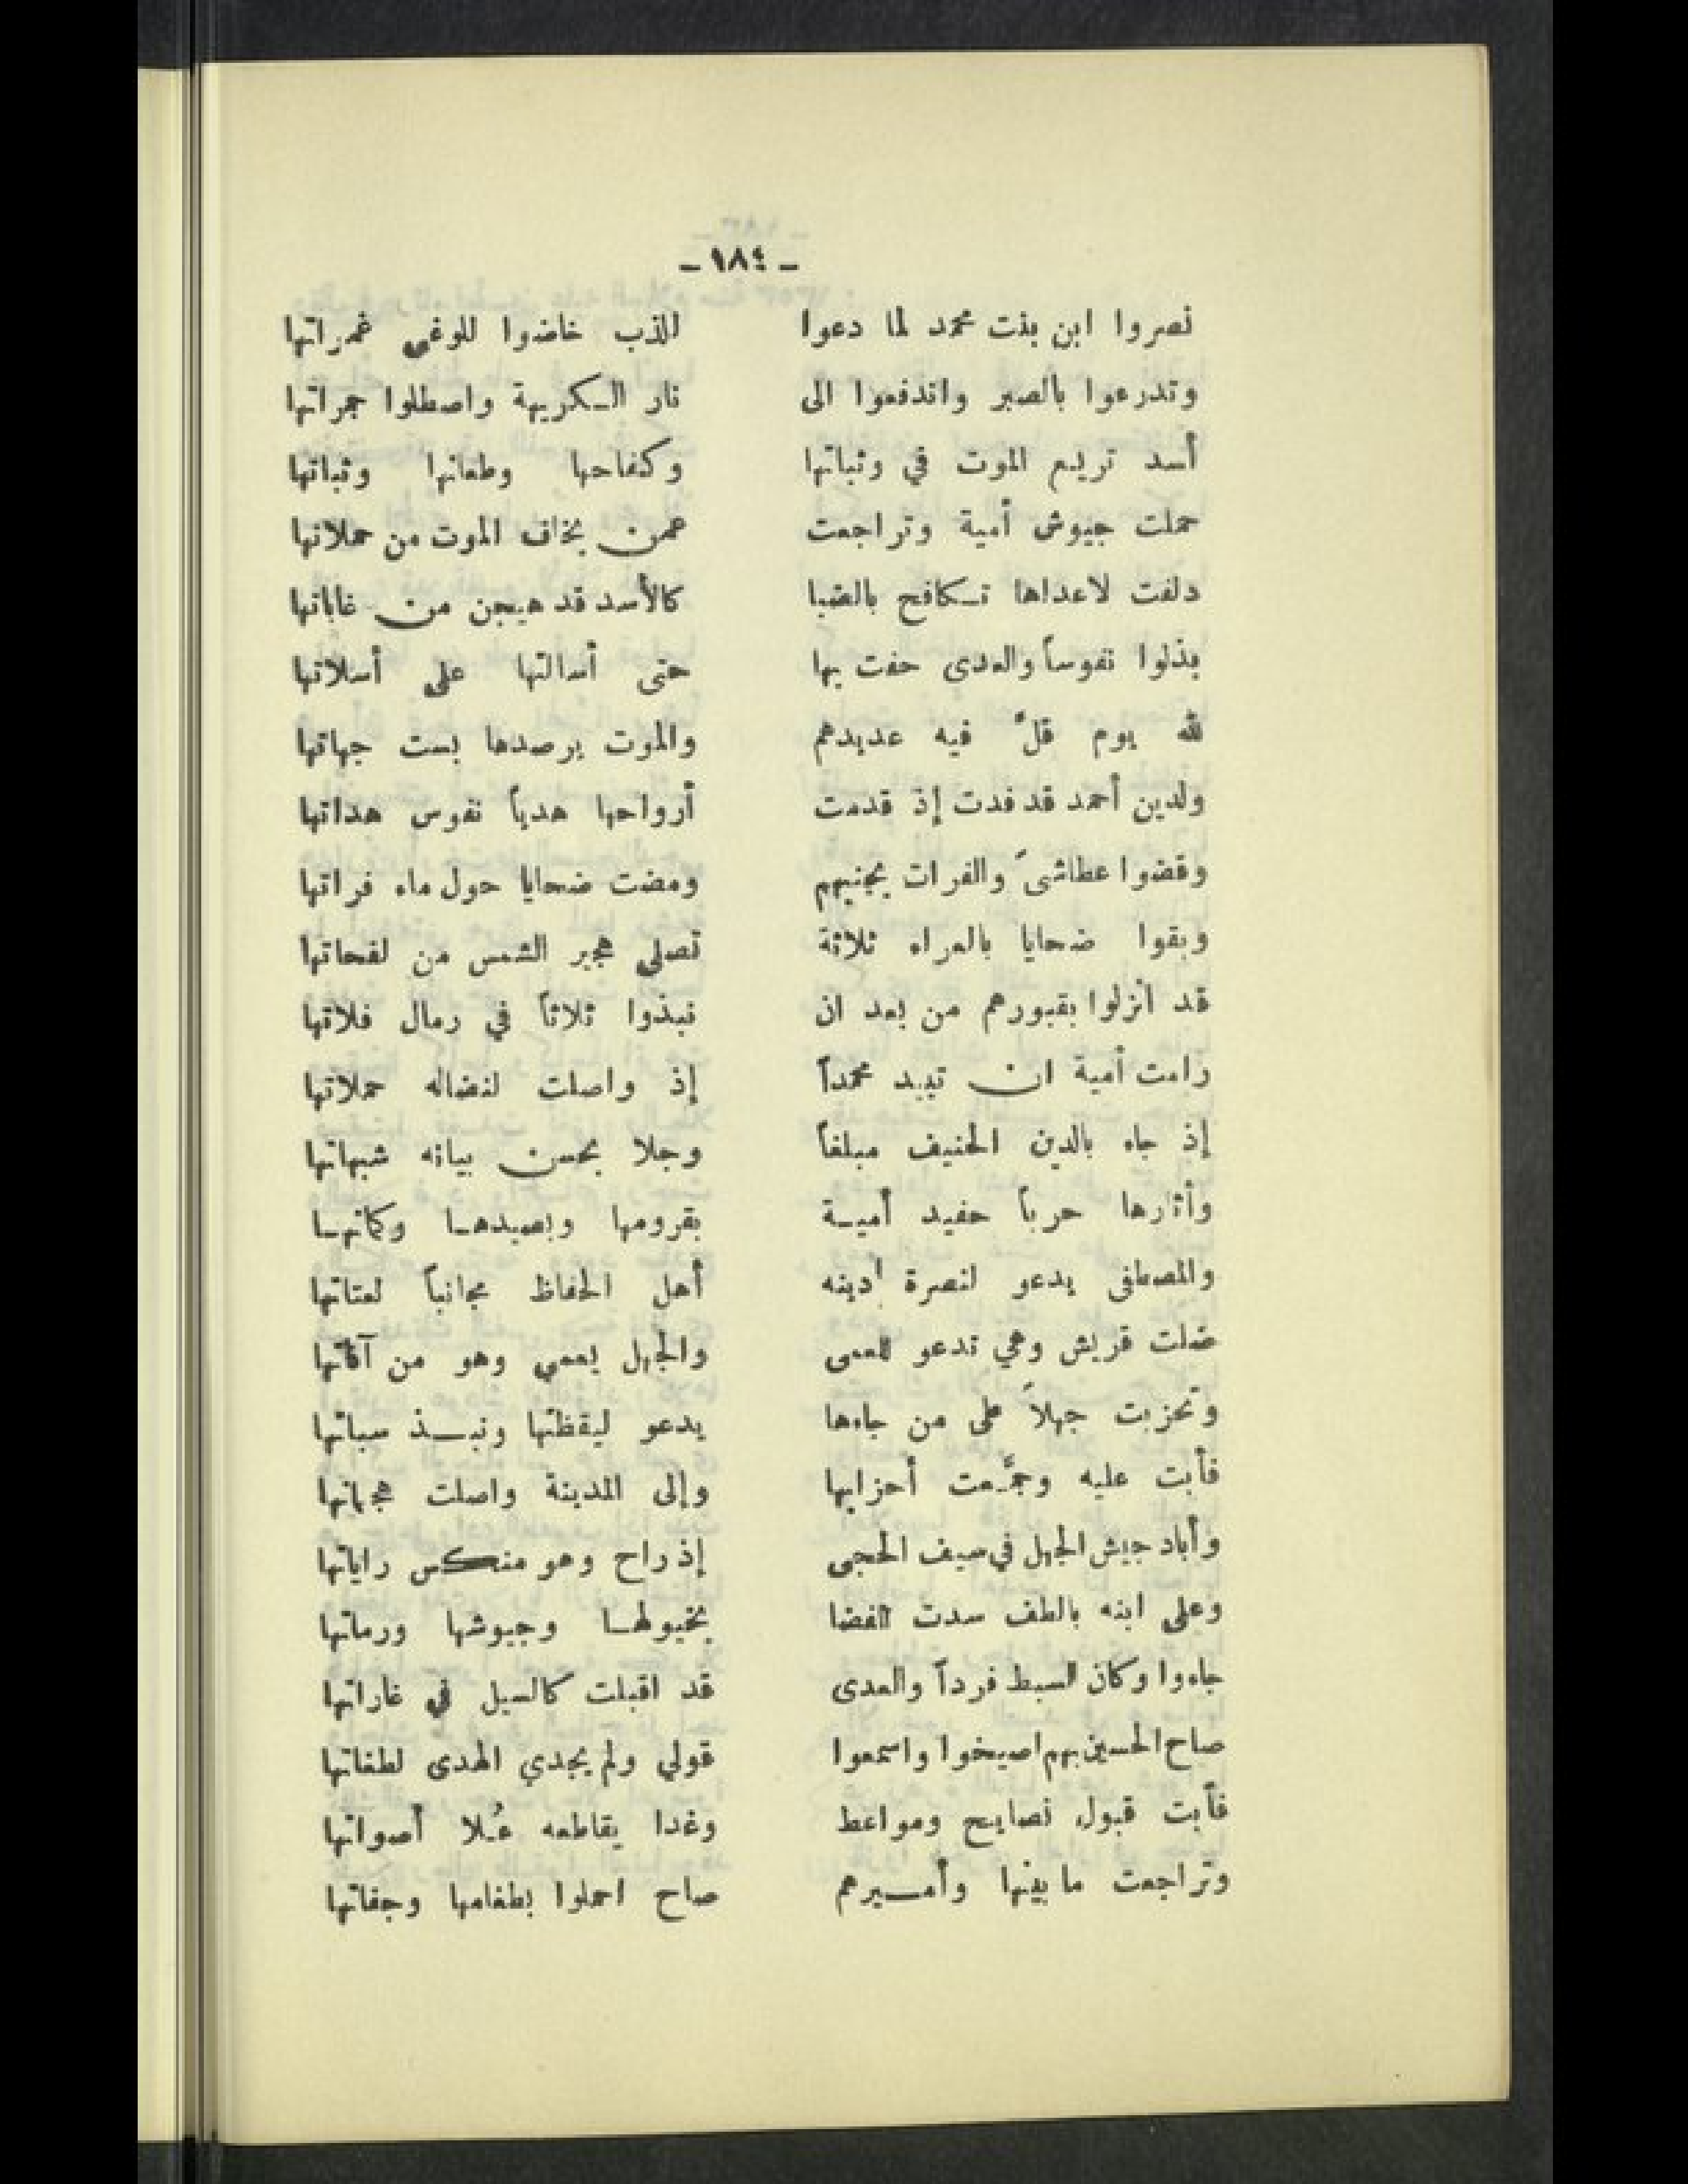 - ١٨٤ -
نصروا ابن بنت محمد لما دعوا للذب خاضوا للوغى غمراتها
وتدرعوا بالصبر واندفعوا الى نار الكريهة واصطلوا جمراتها
أسد تريع الموت في وثباتها وكفاحها وطعانها وثباتها
حملت جيوش أمية وتراجعت عمن يخاف الموت من حملاتها
دلفت لاعداها تكافح بالضبا كالأسد قد هيجن من غاباتها
بذلوا نفوساً والعدى حفت بها حتى أسالتها على أسلاتها
لله يوم قلَّ فيه عديدهم والموت يرصدها بست جهاتها
ولدين أحمد قد فدت إذ قدمت أرواحها هدياً نفوس هداتها
وقضوا عطاشىً والفرات بجنبهم ومضت ضحايا حول ماء فراتها
وبقوا ضحايا بالعراء ثلاثة تصلى هجير الشمس من لفحاتها
قد انزلوا بقبورهم من بعد ان نبذوا ثلاثاً في رمال فلاتها
رامت أمية ان تبيد محمداً إذ واصلت لنضاله حملاتها
إذ جاء بالدين الحنيف مبلغاً وجلا بحسن بيانه شبهاتها
وأثارها حرباً حفيد أمية بقرومها وبصيدها وكماتها
والمصطفى يدعو لنصرة دينه أهل الحفاظ مجانباً لعتاتها
ضلت قريش وهي تدعو للعمى والجهل يعمي وهو من آفاتها
وتحزبت جهلاً على من جاءها يدعو ليقظتها ونبذ سباتها
فأبت عليه وجمَّعت أحزابها وإلى المدينة واصلت هجماتها
وأباد جيش الجهل في سيف الحجى إذ راح وهو منكس راياتها
وعلى ابنه بالطف سدت الفضا بخيولها وجيوشها ورماتها
جاءوا وكان السبط فرداً والعدى قد اقبلت كالسيل في غاراتها
صاح الحسين بهم اصيخوا واسمعوا قولي ولم يجدي الهدى لطغاتها
فأبت قبول نصايح ومواعظ وغدا يقاطعه عُلا أصواتها
وتراجعت ما بينها وأميرهم صاح احملوا بطغامها وجفاتها